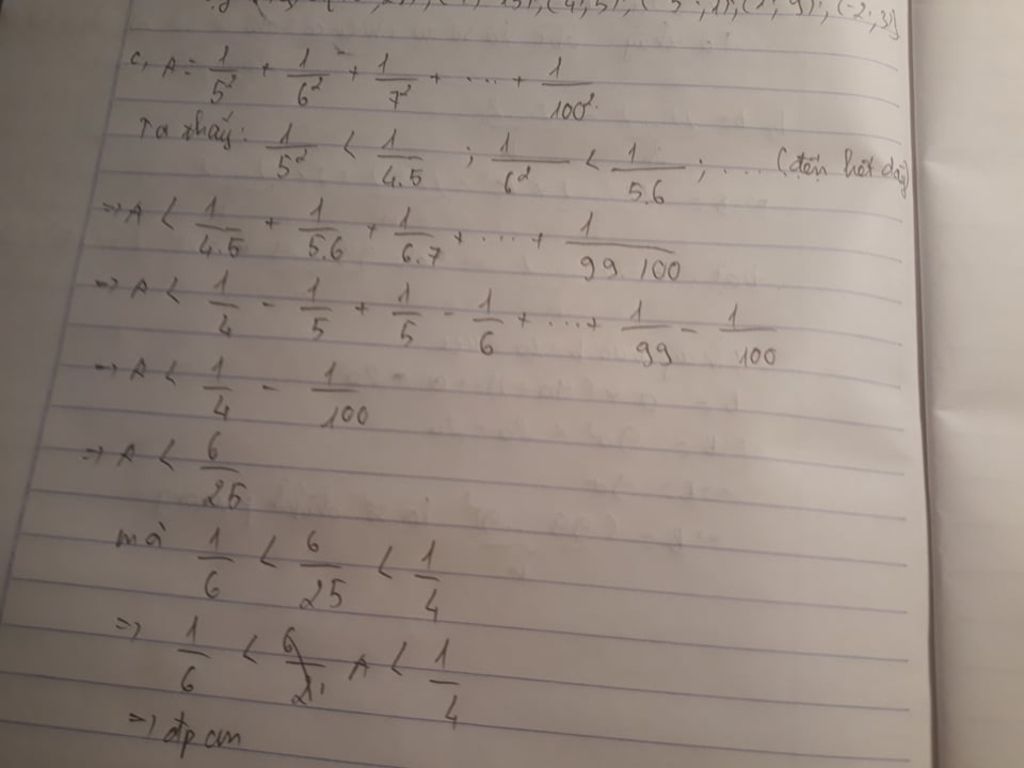 c, A = 1/5² + 1/6² + 1/7² + ... + 1/100²
Ta thấy: 1/5² < 1/4.5 ; 1/6² < 1/5.6 ; ... (đến hết dãy)
=> A < 1/4.5 + 1/5.6 + 1/6.7 + ... + 1/99.100
=> A < 1/4 - 1/5 + 1/5 - 1/6 + ... + 1/99 - 1/100
=> A < 1/4 - 1/100
=> A < 6/25
mà 1/6 < 6/25 < 1/4
=> 1/6 < A < 1/4
=> đpcm